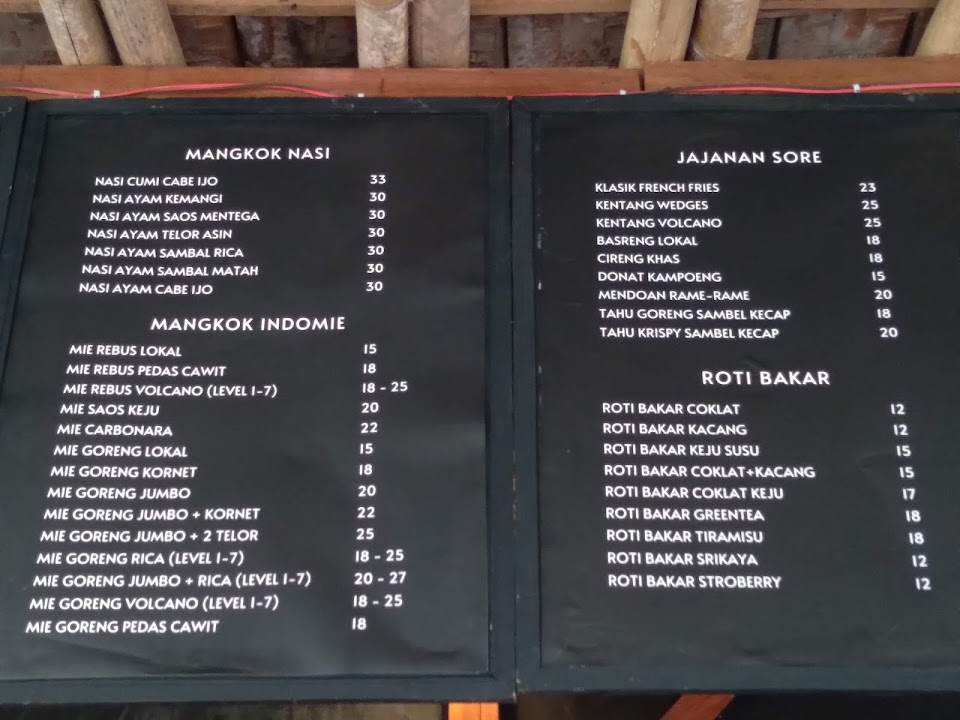 MANGKOK NASI
NASI CUMI CABE IJO 33
NASI AYAM KEMANGI 30
NASI AYAM SAOS MENTEGA 30
NASI AYAM TELOR ASIN 30
NASI AYAM SAMBAL RICA 30
NASI AYAM SAMBAL MATAH 30
NASI AYAM CABE IJO 30
MANGKOK INDOMIE
MIE REBUS LOKAL 15
MIE REBUS PEDAS CAWIT 18
MIE REBUS VOLCANO (LEVEL 1-7) 18 - 25
MIE SAOS KEJU 20
MIE CARBONARA 22
MIE GORENG LOKAL 15
MIE GORENG KORNET 18
MIE GORENG JUMBO 20
MIE GORENG JUMBO + KORNET 22
MIE GORENG JUMBO + 2 TELOR 25
MIE GORENG RICA (LEVEL 1-7) 18 - 25
MIE GORENG JUMBO + RICA (LEVEL 1-7) 20 - 27
MIE GORENG VOLCANO (LEVEL 1-7) 18 - 25
MIE GORENG PEDAS CAWIT 18
JAJANAN SORE
KLASIK FRENCH FRIES 23
KENTANG WEDGES 25
KENTANG VOLCANO 25
BASRENG LOKAL 18
CIRENG KHAS 18
DONAT KAMPOENG 15
MENDOAN RAME-RAME 20
TAHU GORENG SAMBEL KECAP 18
TAHU KRISPY SAMBEL KECAP 20
ROTI BAKAR
ROTI BAKAR COKLAT 12
ROTI BAKAR KACANG 12
ROTI BAKAR KEJU SUSU 15
ROTI BAKAR COKLAT+KACANG 15
ROTI BAKAR COKLAT KEJU 17
ROTI BAKAR GREENTEA 18
ROTI BAKAR TIRAMISU 18
ROTI BAKAR SRIKAYA 12
ROTI BAKAR STROBERRY 12